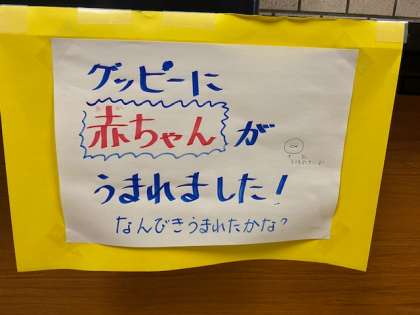 グッピーに
赤ちゃんが
うまれました!
なんびきうまれたかな?